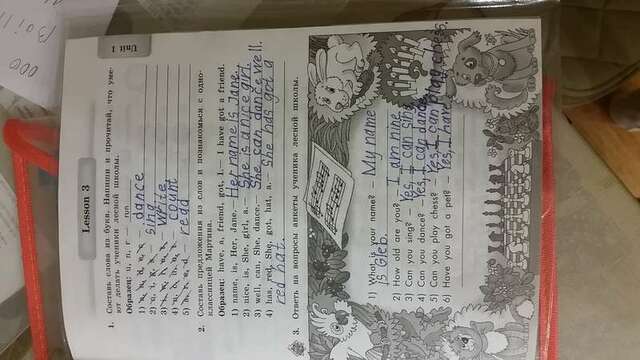 ООО
Lesson 3
Unit 1
1. Составь слова из букв. Напиши и прочитай, что уме-
ют делать ученики лесной школы.
Образец: u, n, r — run
1) dance
2) sing
3) write
4) count
5) read
2. Составь предложения из слов и познакомься с одно-
классницей Мартина.
Образец: have, a, friend, got, I.— I have got a friend.
1) name, is, Her, Jane.— Her name is Jane.
2) nice, is, She, girl, a.— She is a nice girl.
3) well, can, She, dance.— She can dance well.
4) has, red, She, got, hat, a.— She has got a
red hat.
3. Ответь на вопросы анкеты ученика лесной школы.
1) What is your name? — My name
is Gleb.
2) How old are you? — I am nine.
3) Can you sing? — Yes, I can sing
4) Can you dance? — Yes, I can dance
5) Can you play chess? — Yes, I can play chess.
6) Have you got a pet? — Yes, I have